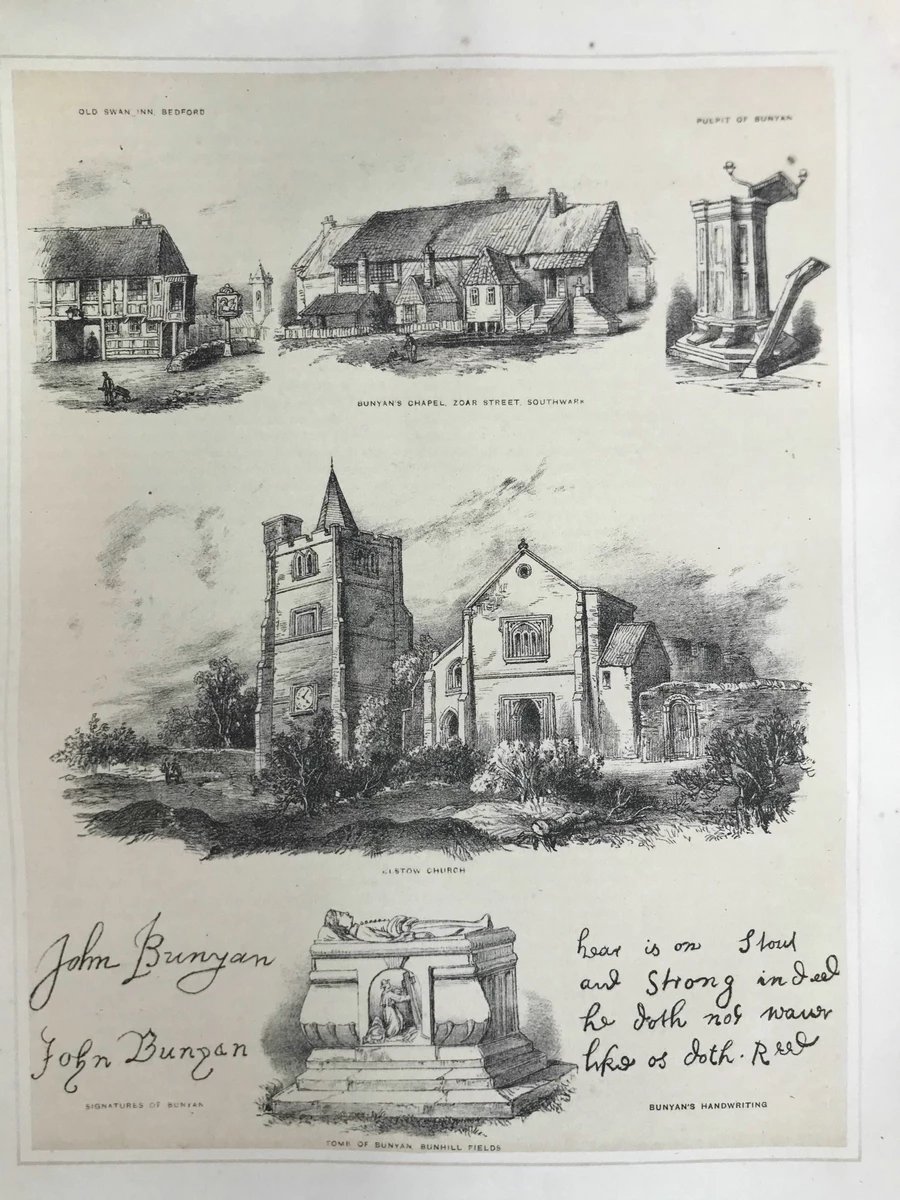 OLD SWAN INN, BEDFORD
PULPIT OF BUNYAN
BUNYAN'S CHAPEL, ZOAR STREET, SOUTHWARK
ELSTOW CHURCH
John Bunyan
John Bunyan
SIGNATURES OF BUNYAN
TOMB OF BUNYAN, BUNHILL FIELDS
hear is on Stout
and Strong indeed
he doth not waver
like os doth. Reed
BUNYAN'S HANDWRITING